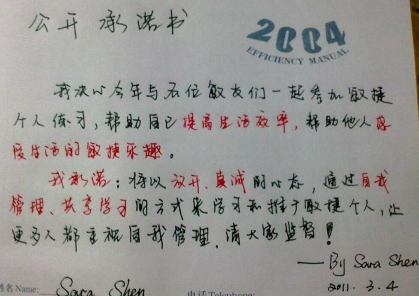 公开承诺书
2004
EFFICIENCY MANUAL
我决心今年与各位敏友们一起参加敏捷
个人练习，帮助自己提高生活效率，帮助他人感
受生活的敏捷乐趣。
我承诺：将以放开、真诚的心态，通过自我
管理、共享学习的方式来学习和推广敏捷个人，让
更多人都重视自我管理，请大家监督！
——By Sara Shen
姓名 Name: Sara Shen 电话 Telephone:
2011. 3. 4